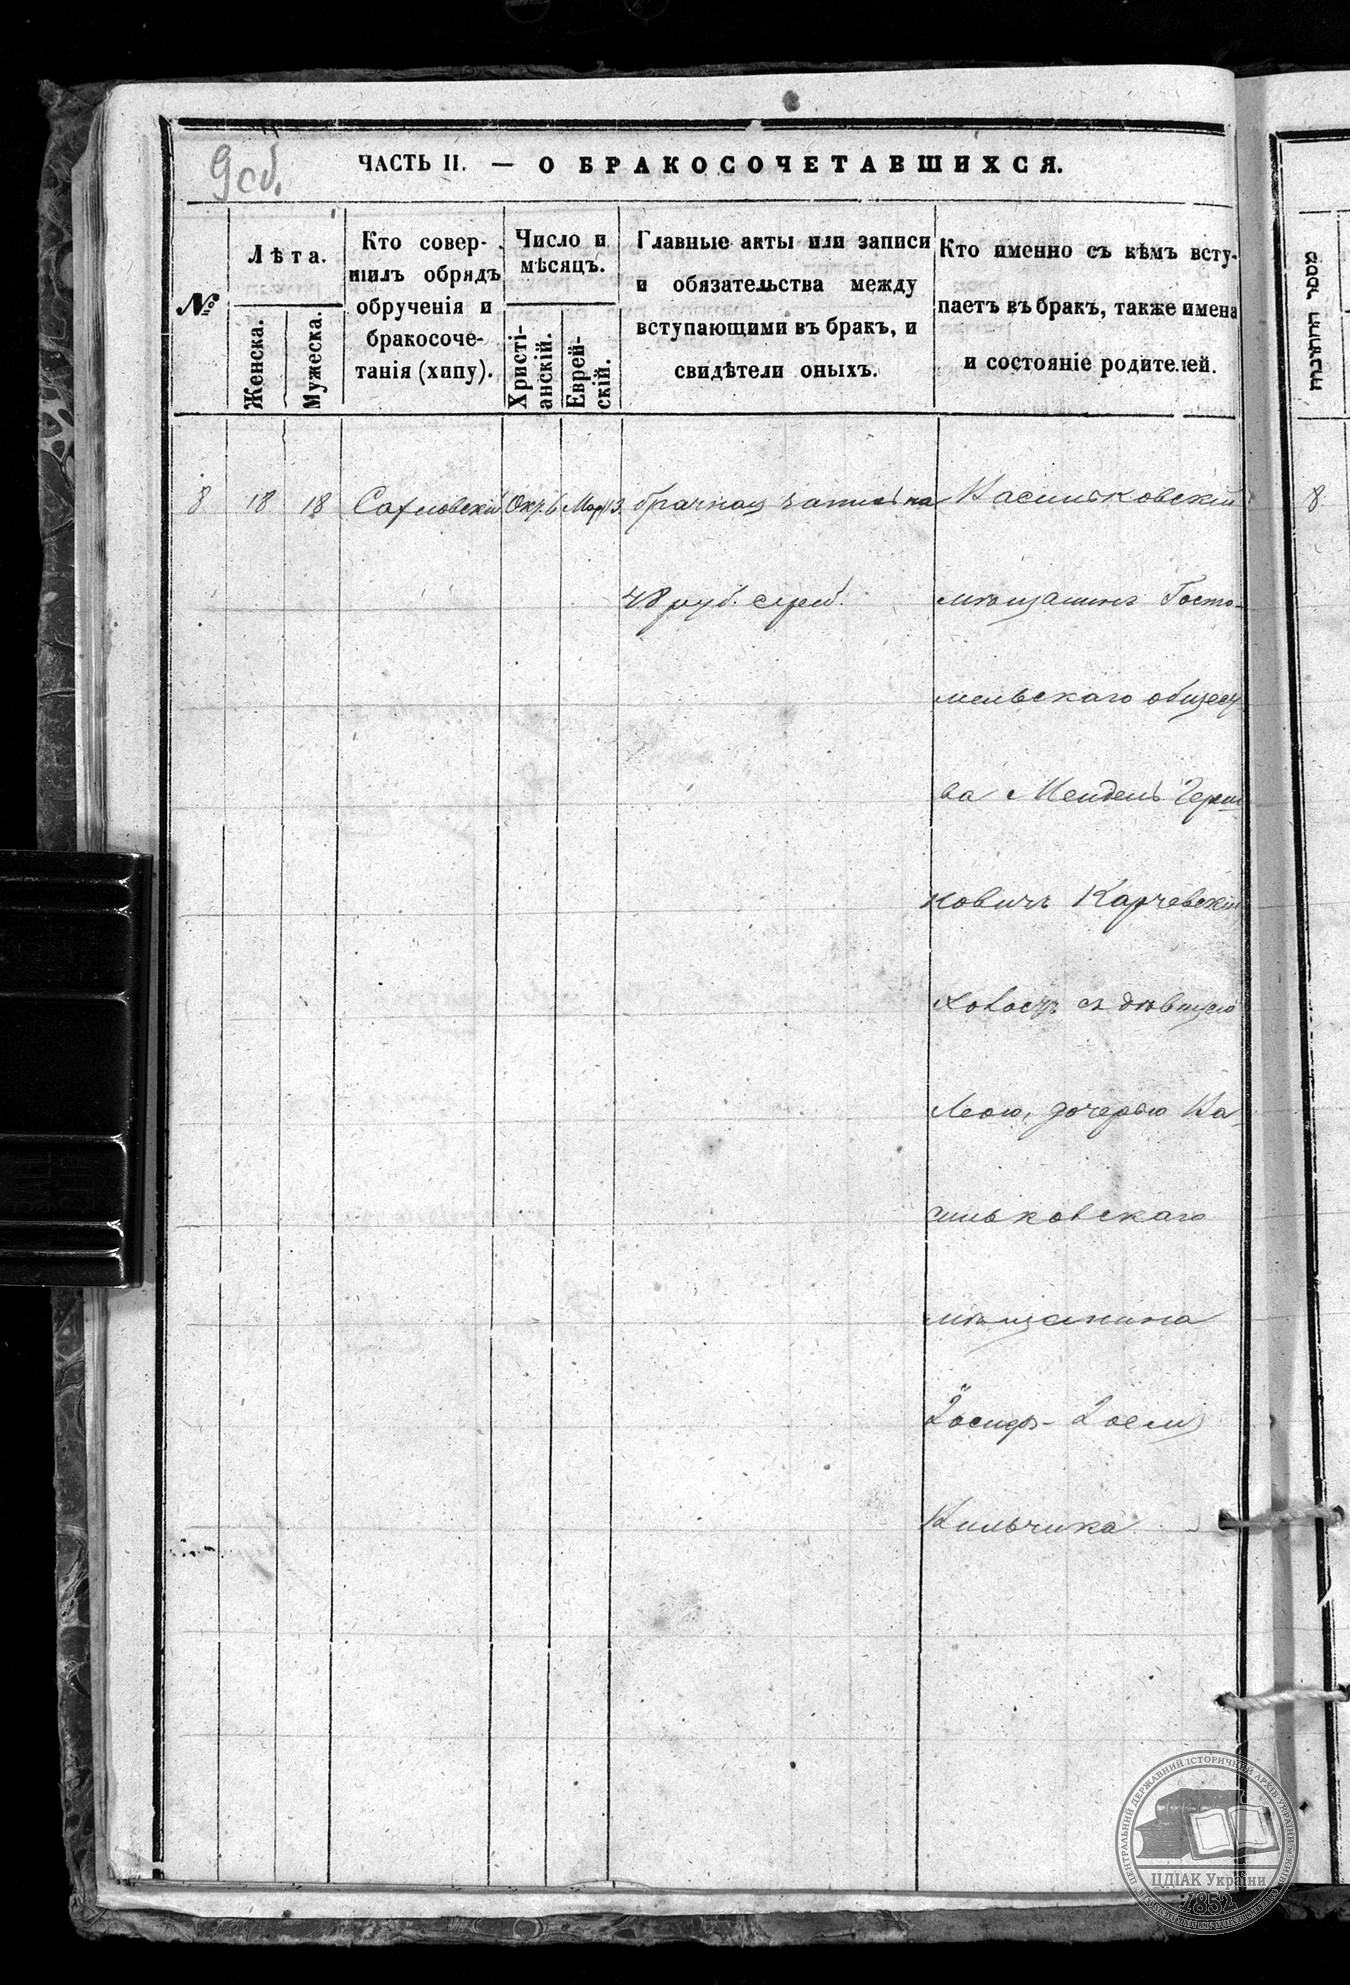 9 об.
ЧАСТЬ II. — О БРАКОСОЧЕТАВШИХСЯ.
№
Лѣта.
Женска.
Мужеска.
Кто совер-
шилъ обрядъ
обрученія и
бракосоче-
танія (хипу).
Число и
мѣсяцъ.
Христі-
анскій.
Еврей-
скій.
Главные акты или записи
и обязательства между
вступающими въ брак, и
свидѣтели оныхъ.
Кто именно съ кѣмъ всту-
паетъ въ брак, также имена
и состояніе родителей.
8 18 18 брачная запись на
48 руб. сереб.
Васильковскій
мѣщанинъ Госто-
мельскаго общест
ва Мендель Герш
ковичъ Карчевскій
холостъ съ дѣвицею
Леою, дочерью Ва
сильковскаго
мѣщанина
Іосифъ-
Кильчика
8
מספר החתונה
ЦЕНТРАЛЬНИЙ ДЕРЖАВНИЙ ІСТОРИЧНИЙ АРХІВ УКРАЇНИ
ЦДІАК України
1852